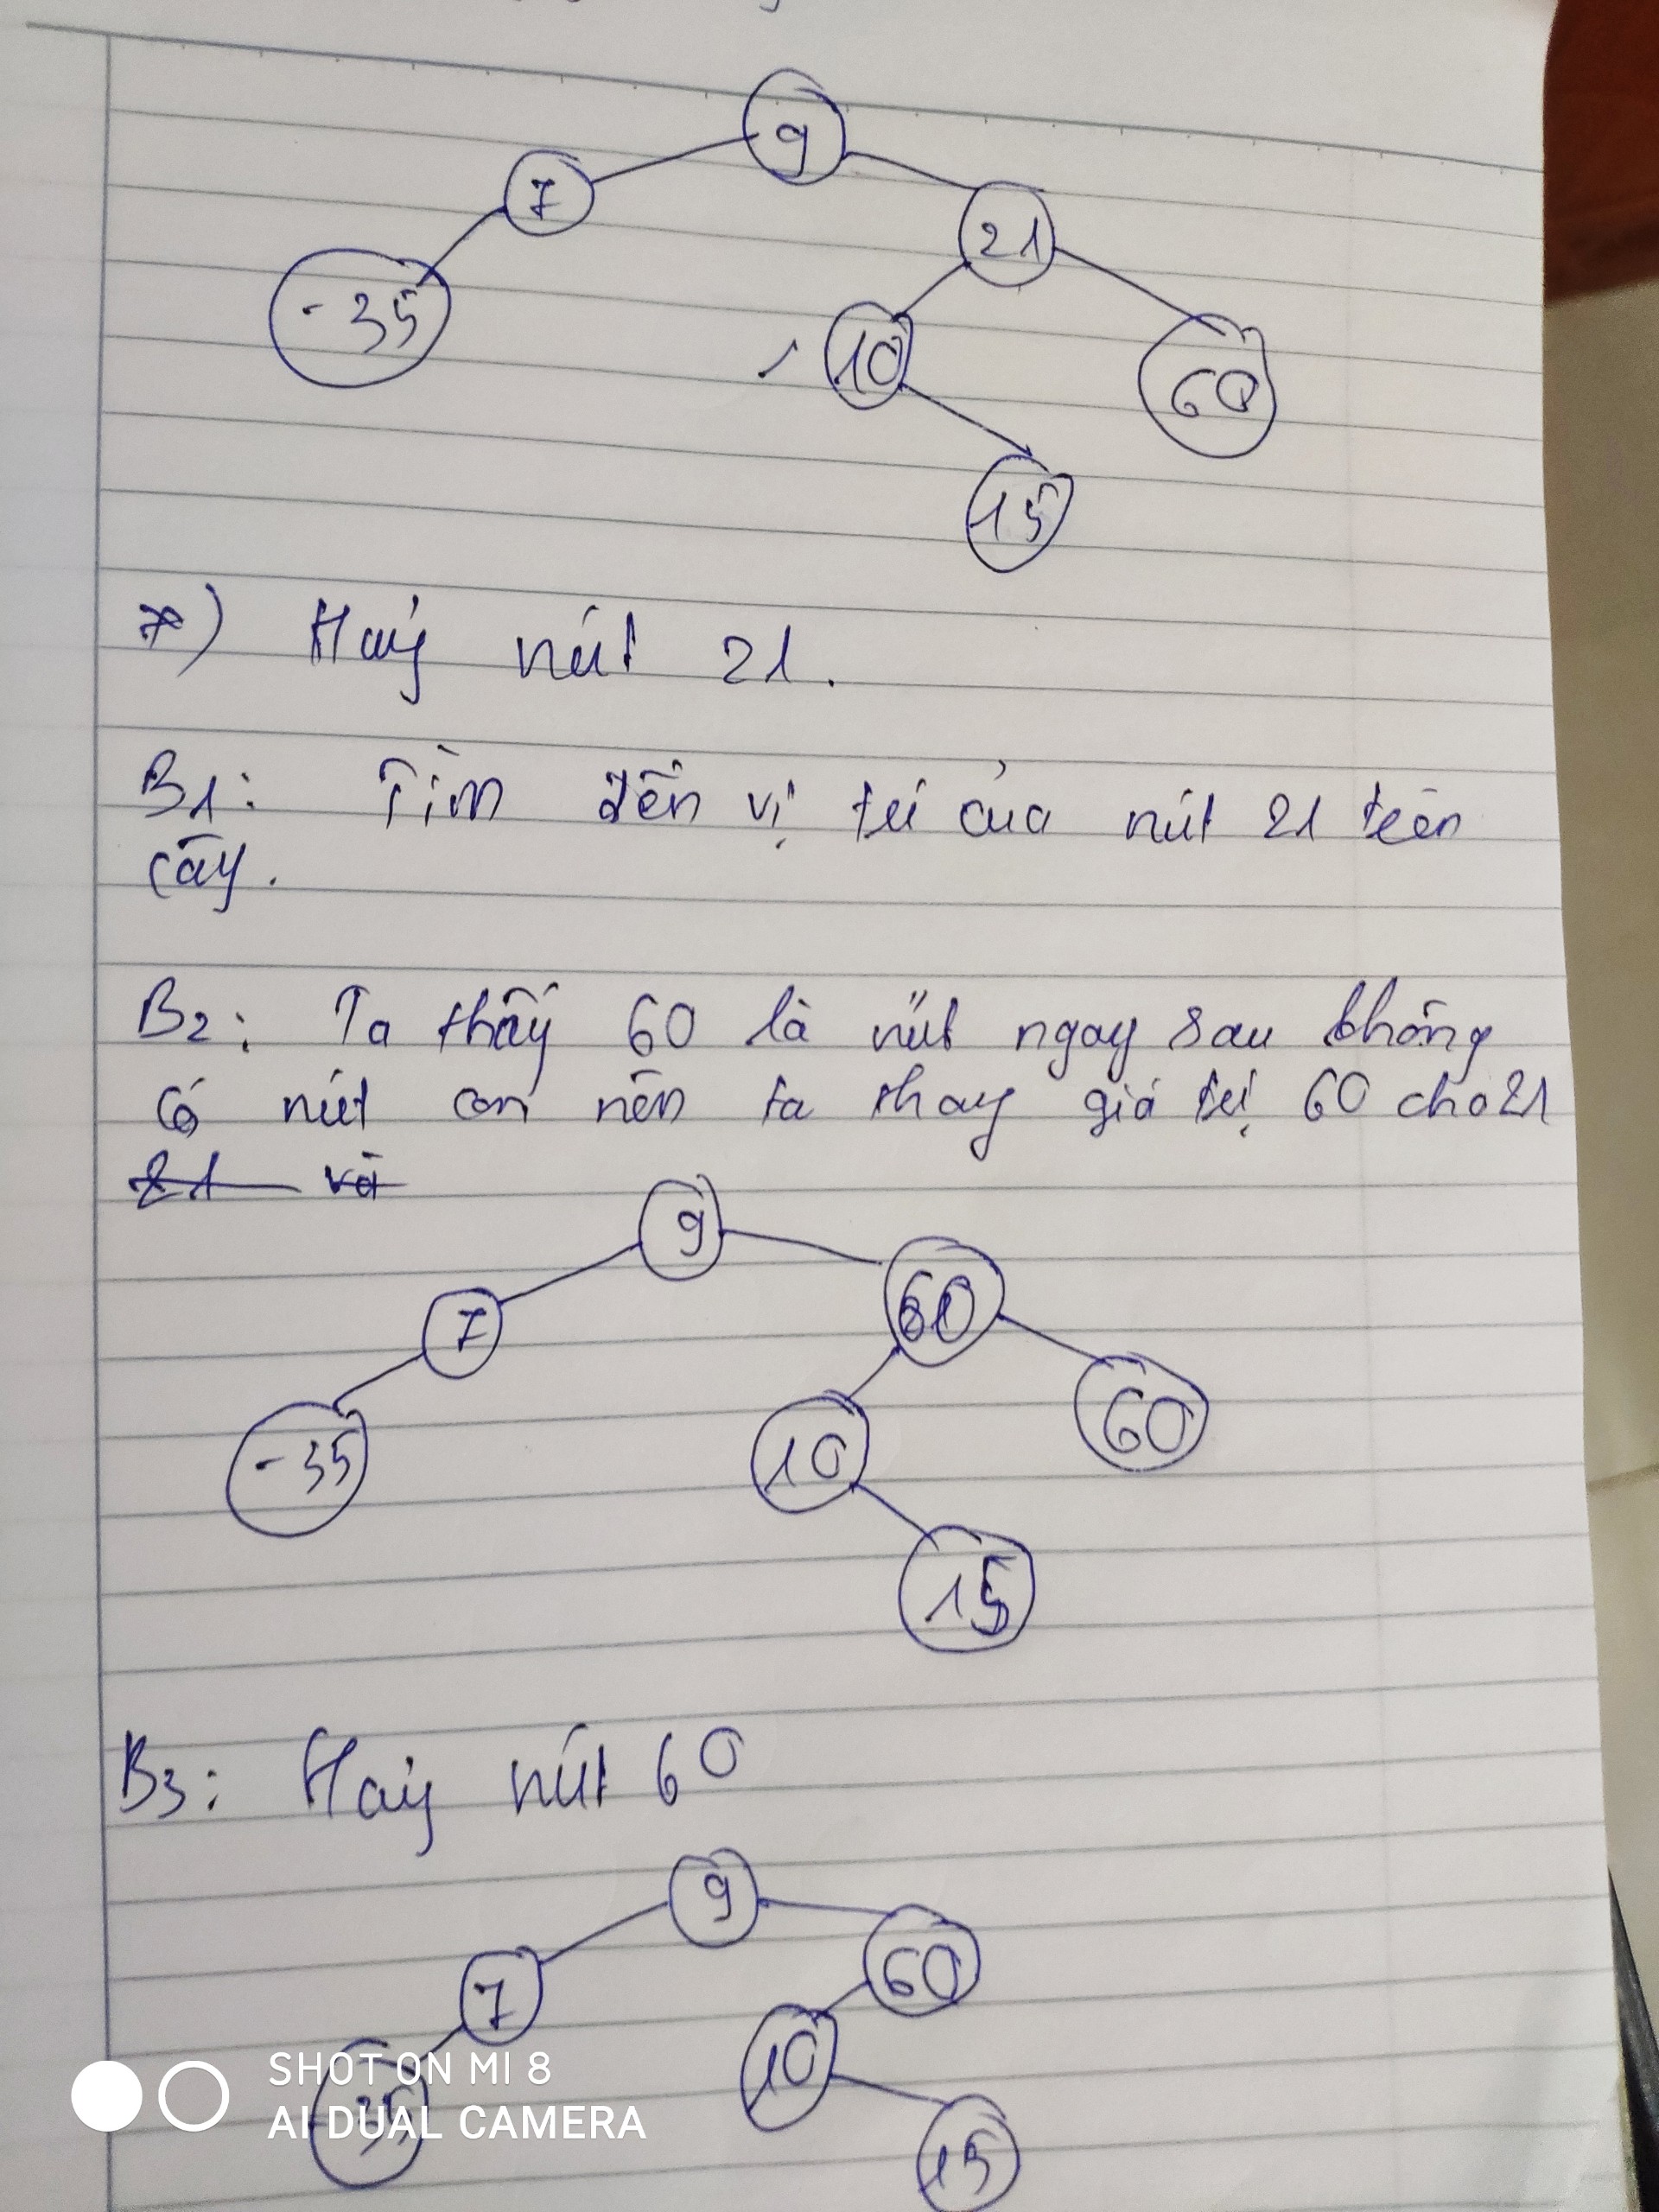 9
7
21
-35
10
60
15
*) Huỷ nút 21.
B1: Tìm đến vị trí của nút 21 trên
cây.
B2: Ta thấy 60 là nút ngay sau không
có nút con nên ta thay giá trị 60 cho 21
21 và
9
7
60
-35
10
60
15
B3: Huỷ nút 60
9
7
60
10
35
15
SHOT ON MI 8
AI DUAL CAMERA